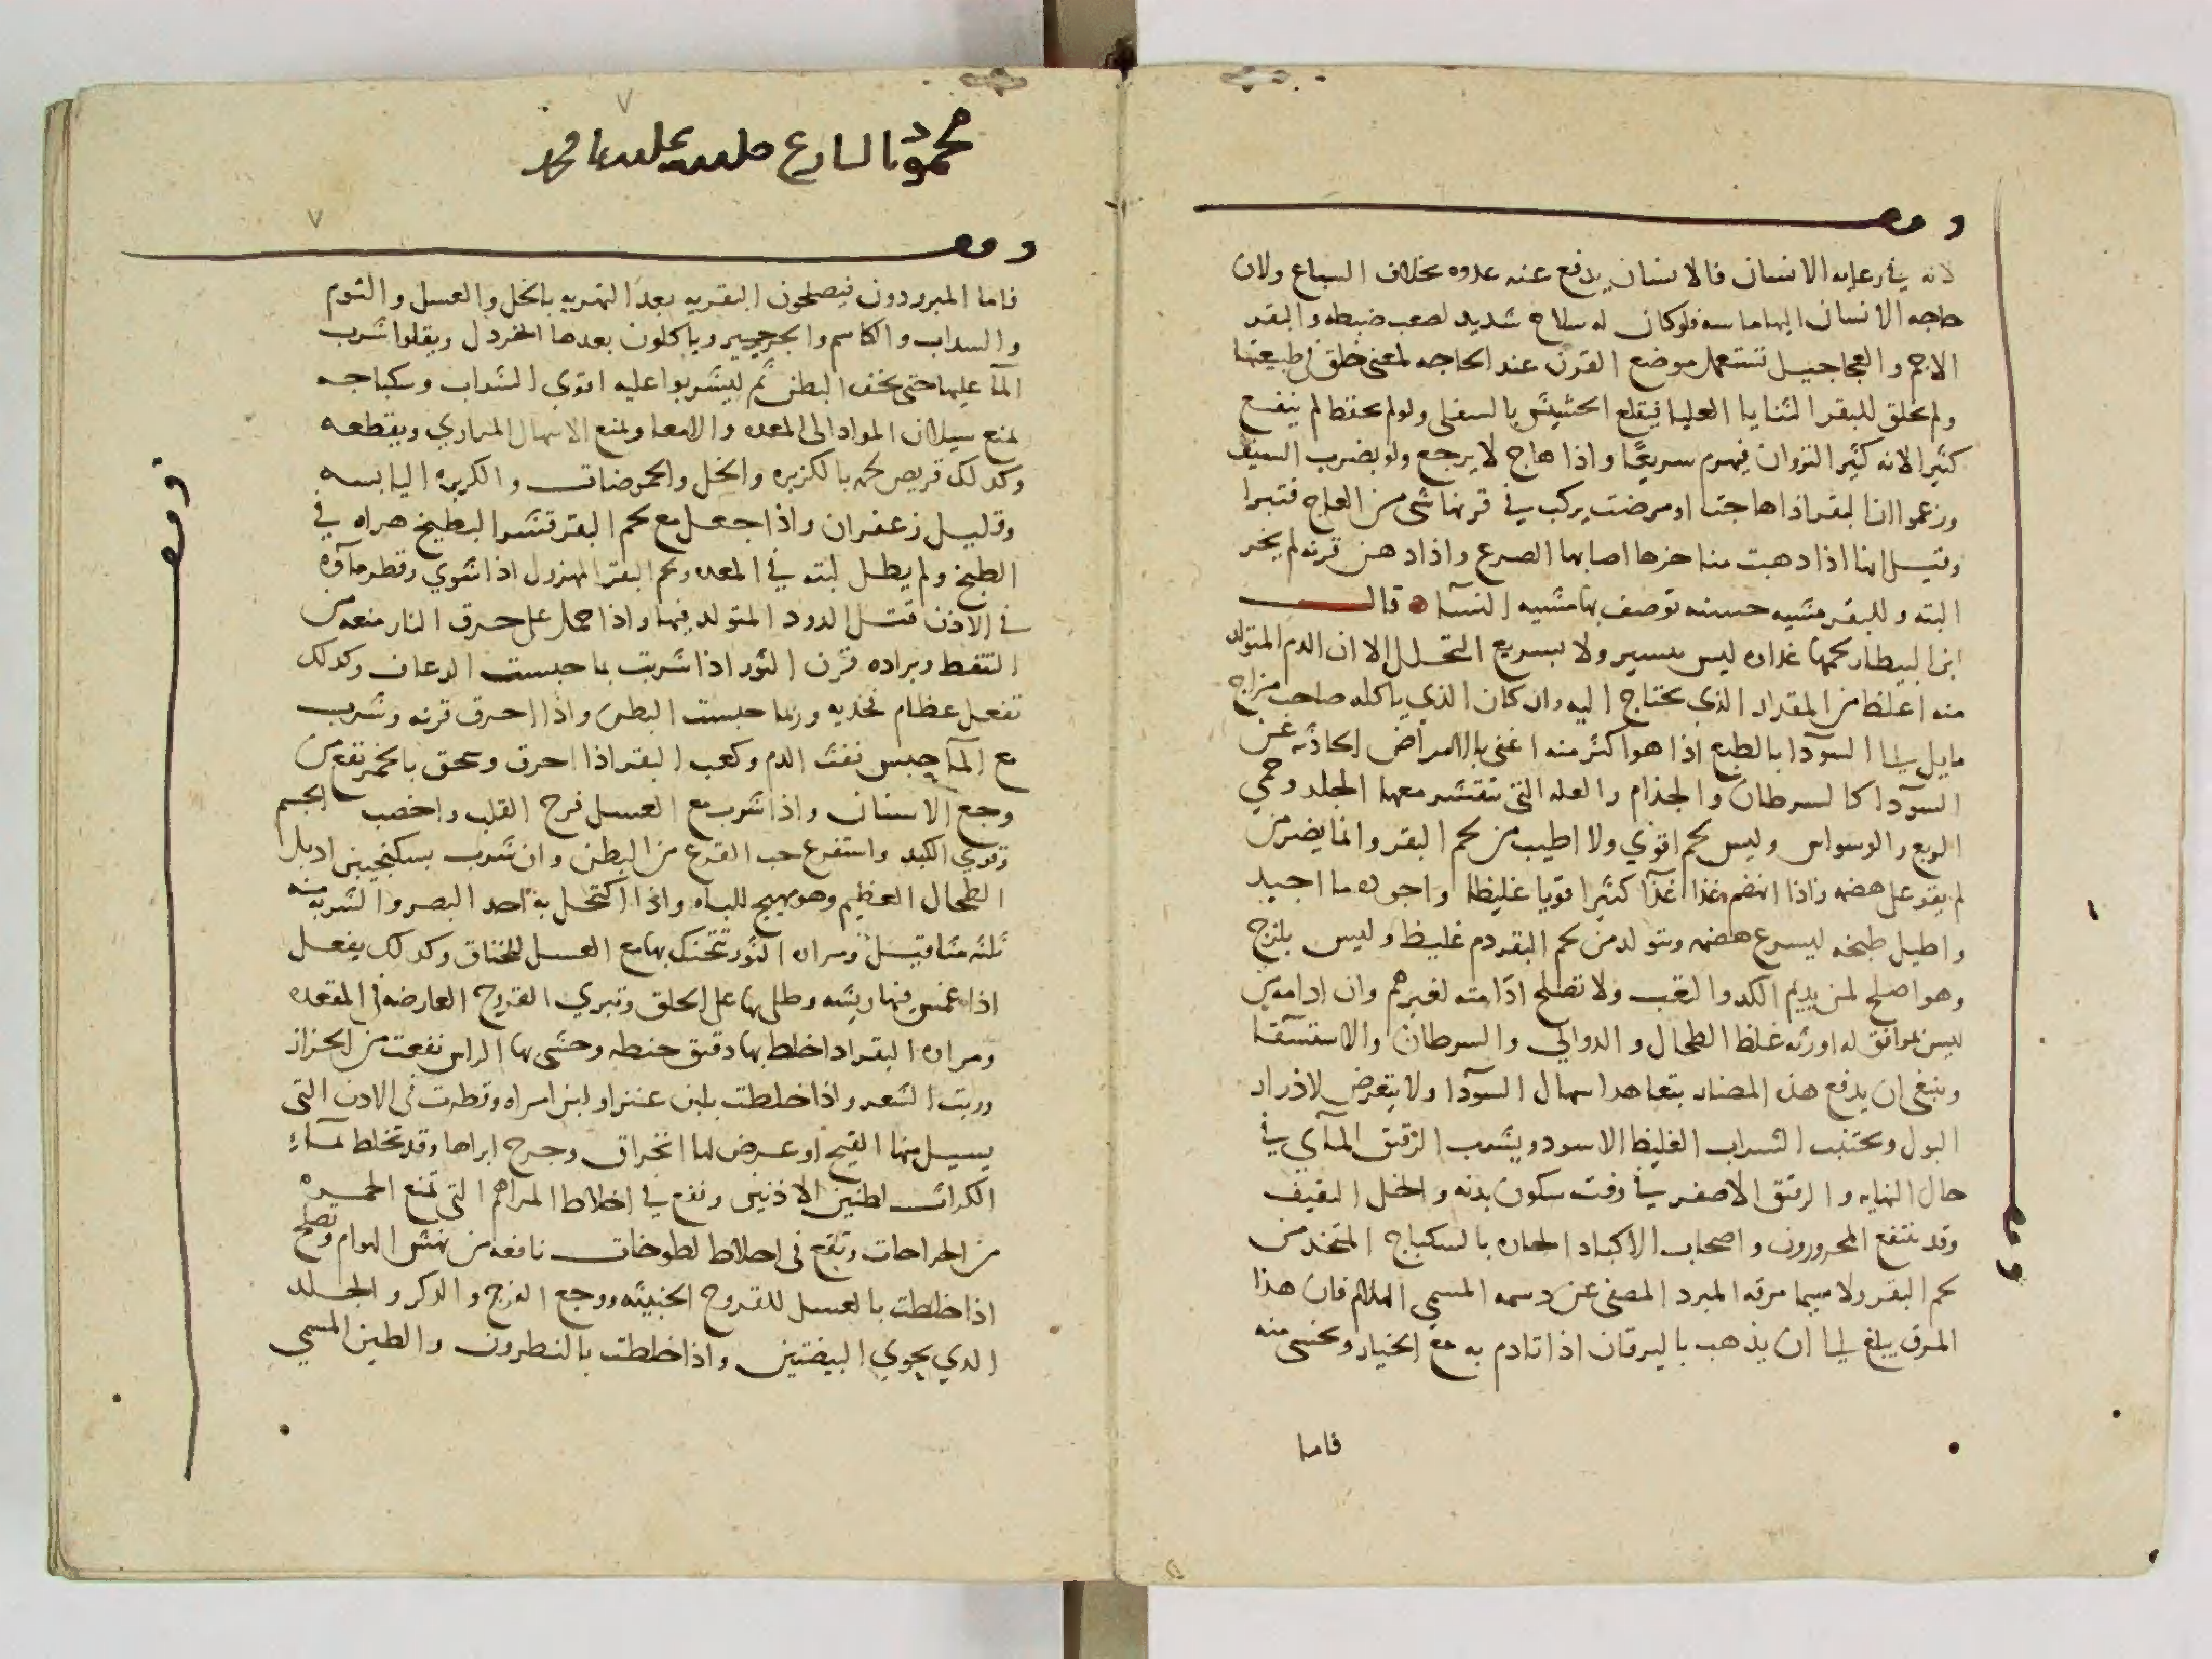 وقف
لانه في رعايه الانسان فالانسان يدفع عنه عدوه بخلاف السباع ولان
حاجه الانسان اليها ماسه فلو كان له سلاح شديد لصعب ضبطه والبقر
الاجم والعجاجيل تستعمل موضع القرن عند الحاجه لمعنى خلق في طبيعتها
ولم يخلق للبقر الثنايا العليا فيقلع الحشيش بالسفلى ولو لم يحفظ لم ينفع
كثيرا لانه كثير النزوان فيهرم سريعا واذا هاج لا يرجع ولو بضرب السيف
وزعموا ان البقر اذا هاجت او مرضت يركب في قرنها شي من العاج فتبرا
وقيل انها اذا دهنت مناخرها اصابها الصرع واذا دهن قرنه لم يخر
البته وللبقر مشيه حسنه توصف بها مشيه النسآ قال
ابن البيطار لحمها غذاه ليس بيسير ولا بسريع التحلل الا ان الدم المتولد
منه اغلظ من المقدار الذي يحتاج اليه وان كان الذي ياكله صاحب مزاج
مايل الى السوآدا بالطبع اذا هو اكثر منه اغنى بالامراض الحادثه عن
السودآ كالسرطان والجذام والعله التي تتقشر معها الجلد وحمي
الربع والوسواس وليس لحم اقوي ولا اطيب من لحم البقر وانما يضر من
لم يقو على هضمه فاذا انهضم غذا غذآ كثيرا قويا غليظا واجوده ما اجيد
واطيل طبخه ليسرع هضمه ويتولد من لحم البقر دم غليظ وليس بلزج
وهو اصلح لمن يديم الكد والتعب ولا تصلح ادامته لغيرهم وان ادامه من
ليس بموافق له اورثه غلظ الطحال والدوالي والسرطان والاستسقآ
وينبغي ان يدفع هذه المضار بتعاهد اسهال السودآ ولا يتعرض لادرار
البول ويجتنب الشراب الغليظ الاسود ويشرب الرقيق المآي في
حال النهايه والرقيق الاصفر في وقت سكون بدنه والخل الثقيف
وقد ينتفع المحرورون واصحاب الاكباد الحاره بالسكباج المتخذ من
لحم البقر ولا سيما مرقه المبرد المصفى عن دسمه المسمي الهلام فان هذا
المرق يبلغ الى ان يذهب باليرقان اذا تادم به مع الخيار وتحسى منه
فاما
وقف
وقف
فاما المبرودون فيصلحون البقريه بعد التهريه بالخل والعسل والثوم
والسداب والكاسم والجرجير وياكلون بعدها الخردل ويقلوا شرب
المآ عليها حتى يخف البطن ثم ليشربوا عليه اقوي الشراب وسكباجه
يمنع سيلان المواد الى المعده والامعا ويمنع الاسهال المراري ويقطعه
وكدلك قريص لحمه بالكزبره والخل والحموضات والكزبره اليابسه
وقليل زعفران واذا جعل مع لحم البقر قشر البطيخ هراه في
الطبخ ولم يطل لبثه في المعده ولحم البقر المهزول اذا شوي وقطر مآوه
في الاذن قتل الدود المتولد فيها واذا حمل على حرق النار منعه من
التنفط وبراده قرن الثور اذا شربت بما حبست الرعاف وكدلك
تفعل عظام فخديه وربما حبست البطن واذا احرق قرنه وشرب
مع المآ حبس نفث الدم وكعب البقر اذا احرق وسحق بالخمر نفع من
وجع الاسنان واذا شرب مع العسل فرح القلب واخصب الجسم
وقوي الكبد واستفرغ حب القرع من البطن وان شرب بسكنجبين ادبل
الطحال العظيم وهو مهيج للباه واذا اكتحل به احد البصر والشربه منه
ثلثه مثاقيل ومراره الثور تتحنك بها مع العسل للخناق وكدلك يفعل
اذا غمس فيها ريشه وطلي بها على الحلق وتبري القروح العارضه في المقعده
ومراره البقر اذا خلط بها دقيق حنطه وحشي بها الراس نفعت من الحزاز
وربت الشعر واذا خلطت بلبن عنز او لبن امراه وقطرت في الادن التي
يسيل منها القيح او عرض لها انخراق وجرح ابراها وقد تخلط بمآء
الكراث لطنين الاذنين وتقع في اخلاط المراهم التي تمنع الحمره
من الجراحات وتقع في اخلاط لطوخات نافعه من نهش الهوام وتصلح
اذا خلطت بالعسل للقروح الخبيثه ووجع الفرج والذكر والجلد
الدي يحوي البيضتين واذا خلطت بالنطرون والطين المسمي
وقف